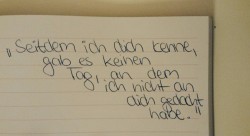 „Seitdem ich dich kenne,
gab es keinen
Tag, an dem
ich nicht an
dich gedacht
habe."